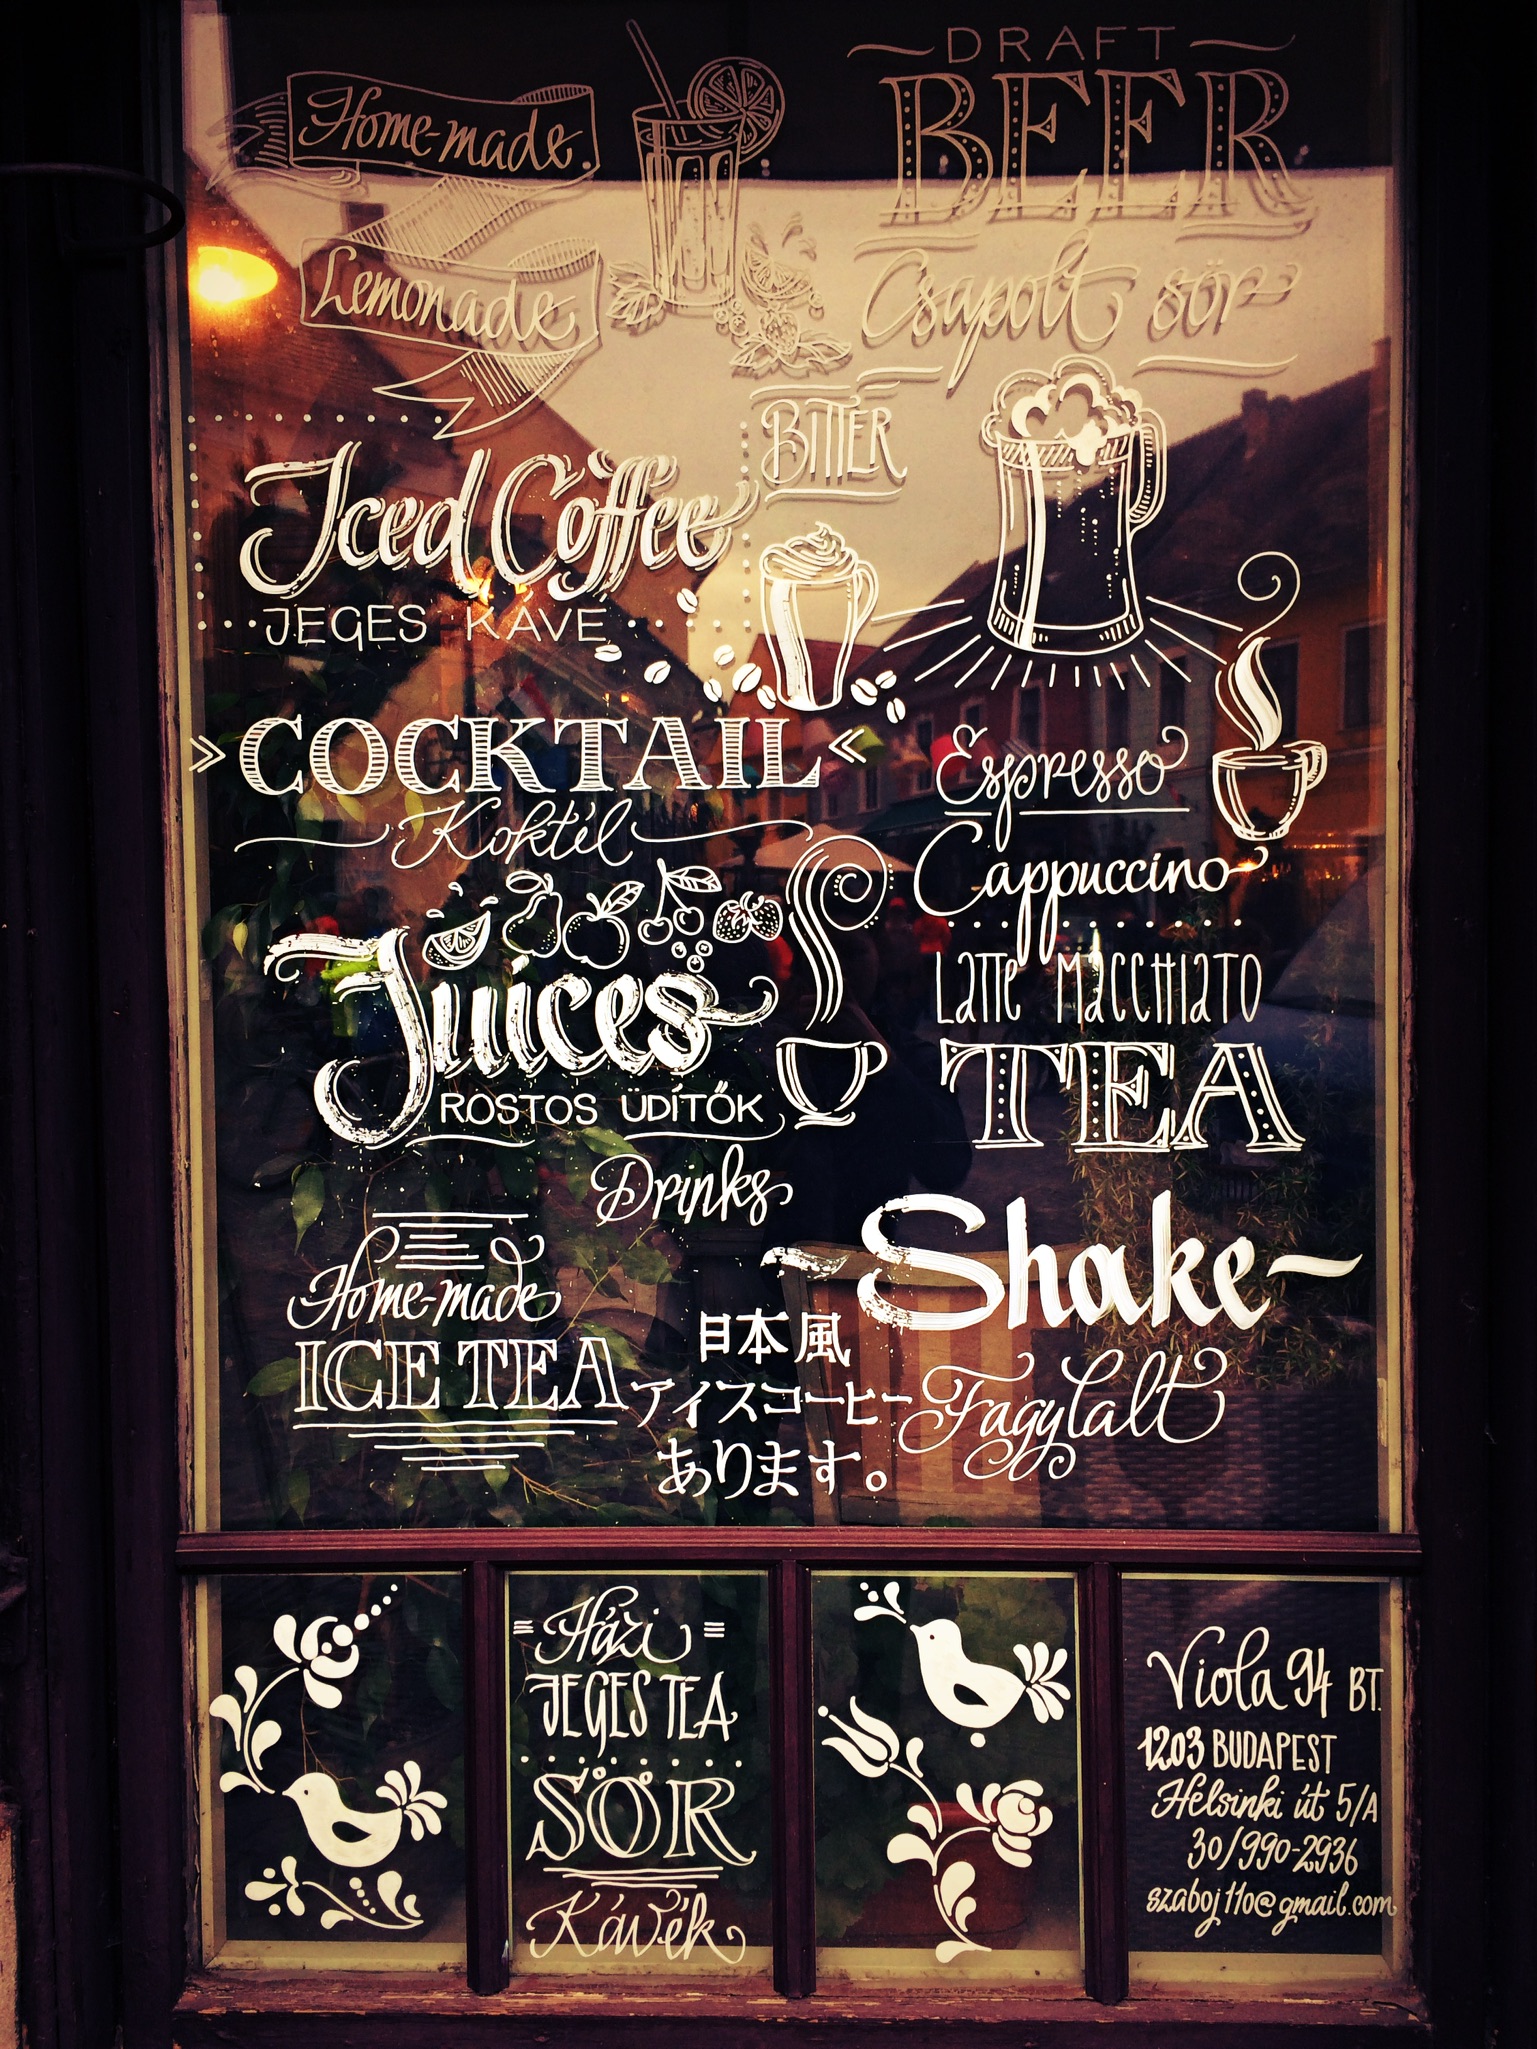 Home-made
Lemonade
DRAFT
BEER
Csapolt sör
BITTER
Iced Coffee
JEGES KÁVE
COCKTAIL
Koktél
Espresso
Cappuccino
Latte Macchiato
TEA
Juices
ROSTOS ÜDÍTŐK
Drinks
Shake
Fagylalt
Home-made
ICE TEA
日本風
アイスコーヒー
あります。
Házi
JEGES TEA
SÖR
Kávék
Viola 94 BT.
1203 BUDAPEST
Helsinki út 5/A
30/990-2936
szaboj110@gmail.com